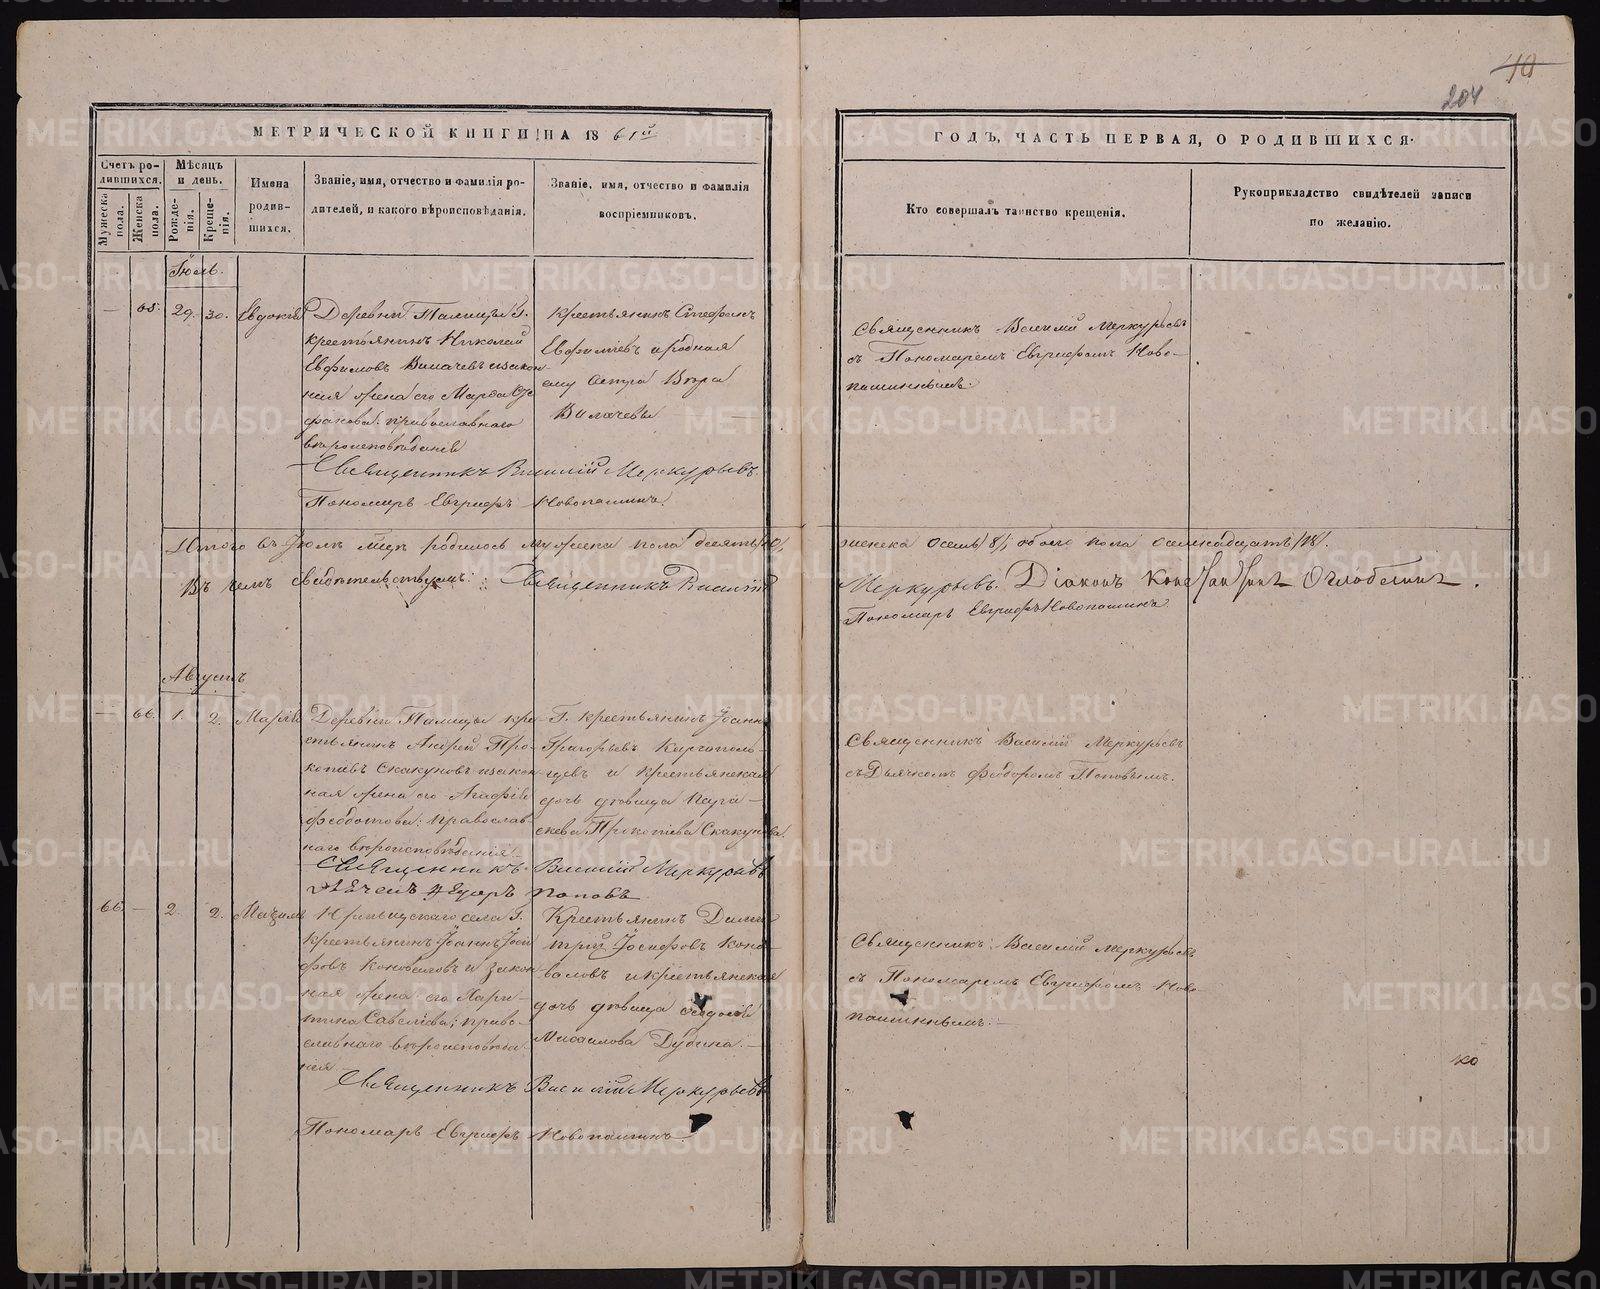 40
204
МЕТРИЧЕСКОЙ КНИГИ НА 1861й
ГОДЪ, ЧАСТЬ ПЕРВАЯ, О РОДИВШИХСЯ.
Счетъ ро-
дившихся.
Мужеска пола.
Женска пола.
Мѣсяцъ
и день.
Рожде-
нія.
Креще-
нія.
Имена
родив-
шихся.
Званіе, имя, отчество и фамилія ро-
дителей, и какого вѣроисповѣданія.
Званіе, имя, отчество и фамилія
воспріемниковъ.
Кто совершалъ таинство крещенія.
Рукоприкладство свидѣтелей записи
по желанію.
Іюль.
— 65. 29. 30. Евдокія
Деревни Палицы Г.
крестьянинъ Николай
Евфимовъ
жена его Марѳа Сте
фанова: православнаго
вѣроисповѣданія
Крестьянинъ Стефанъ
Евфиміевъ и родная
ему сестра Вѣра
Священникъ Василій Меркурьевъ
съ Пономаремъ Евграфомъ Ново-
пашиннымъ.
Священникъ Василій Меркурьевъ.
Пономарь Евграфъ Новопашинъ.
Итого въ Іюлѣ мцѣ родилось мужеска пола десять /10/,
женска осемь /8/, обоего пола осемнадцать /18/.
Въ чемъ свидѣтельствуемъ: Священникъ Василій
Меркурьевъ. Діаконъ Константинъ Оглоблинъ.
Пономарь Евграфъ Новопашинъ.
Августъ
— 66. 1. 2. Марія
Деревни Палицы кре-
стьянинъ Андрей Про-
копіевъ Скакуновъ и закон-
ная жена его Агафія
Ѳеодотова: православ-
наго вѣроисповѣданія
Г. крестьянинъ Іоаннъ
Григорьевъ Каргополь-
цевъ и крестьянская
дочь дѣвица Пара-
скева Прокопіева Скакунова
Священникъ Василій Меркурьевъ
съ Дьячкомъ Ѳеодоромъ Поповымъ.
Священникъ Василій Меркурьевъ
Дьячекъ Ѳедоръ Поповъ
66. — 2. 2. Максимъ
села Г.
крестьянинъ Іоаннъ Іоси
фовъ Коноваловъ и закон
ная жена его Хари-
тина Савеліева; право-
славнаго вѣроисповѣда-
нія
Крестьянинъ Дими
трій Іосифовъ Коно-
валовъ и крестьянская
дочь дѣвица
Михаилова Дубина.
Священникъ Василій Меркурьевъ
съ Пономаремъ Евграфомъ Ново-
пашиннымъ.
Священникъ Василій Меркурьевъ
Пономарь Евграфъ Новопашинъ
ко
METRIKI.GASO-URAL.RU